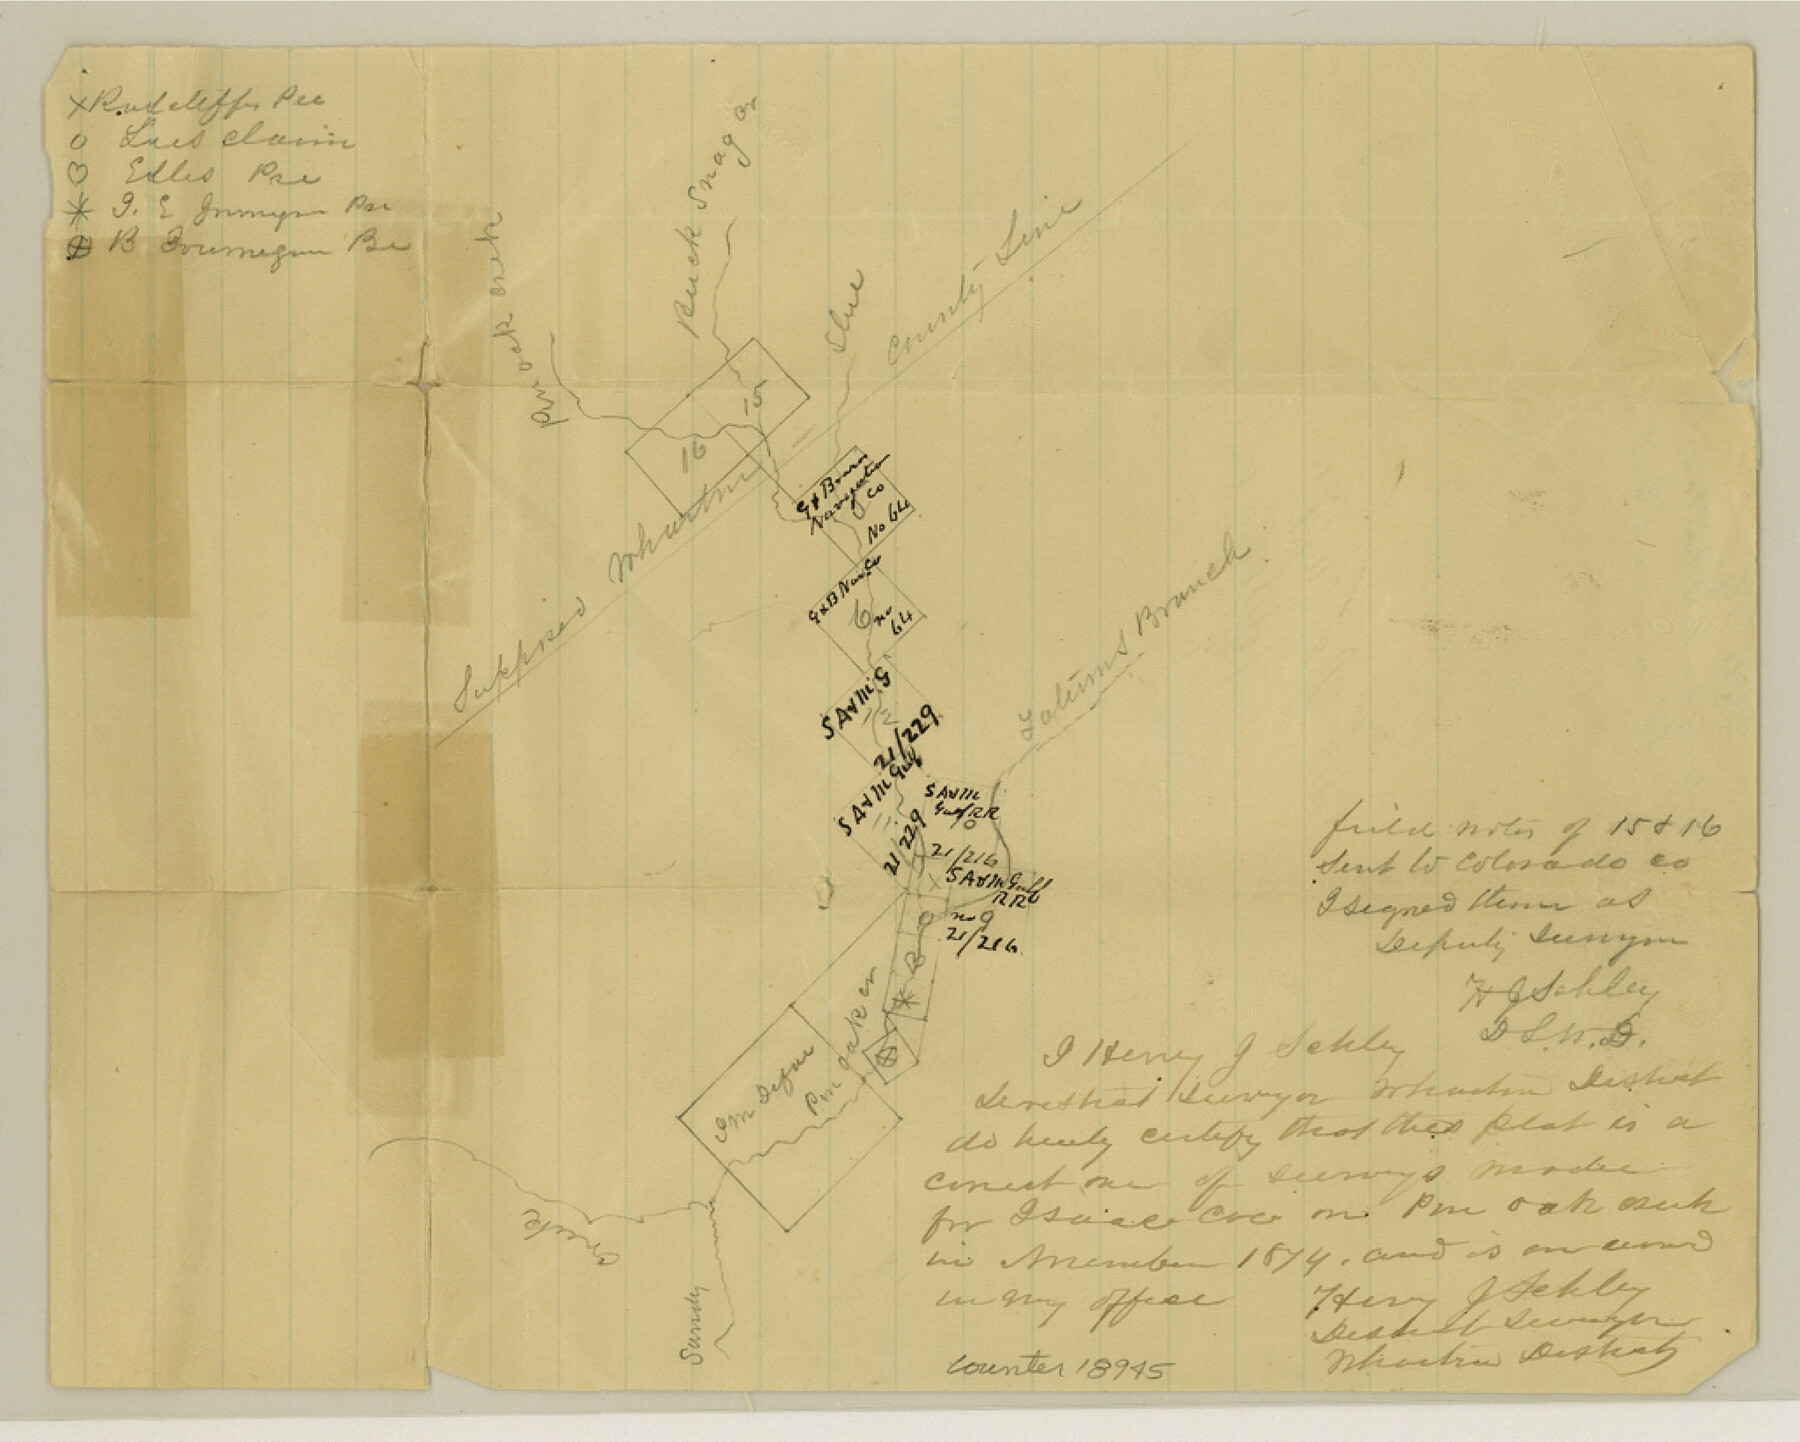 x Radcliffs Pre
o Lees claim
Edles Pre
B Bourmegun Pre
Pin oak creek
Buck Snag cr
Slue
Supposed Wharton County Line
15
16
G & B Navigation
Co
No 64
G & B Nav. Co
6
no
64
S A & M G
12
21/229
S A & M Gulf
11
21/229
S A & M
Gulf RR
10
21/216
x
S A & M Gulf
RR
o
no 9
21/216
Tatums Branch
Pin oak cr
Sandy
Creek
field notes of 15 & 16
sent to Colorado co
I signed them as
Deputy Surveyor
H J Schley
D S. W. D.
I Henry J Schley
District Surveyor Wharton District
do hereby certify that this plat is a
correct one of surveys made
for Isaac Coe on Pin oak creek
in November 1874. and is on record
in my office
Henry J Schley
District Surveyor
Wharton District
counter 18945